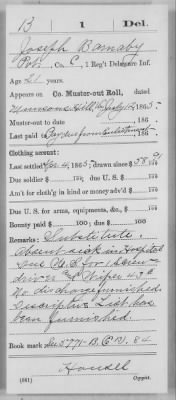 B | 1 | Del.
Joseph Barnaby
Pvt., Co. C, 1 Reg't Delaware Inf.
Age 21 years.
Appears on Co. Muster-out Roll, dated
Munsons Hill, Va July 12, 1865.
Muster-out to date , 186 .
Last paid , 186 .
Clothing account:
Last settled 4, 1865; drawn since $
Due soldier $ 100; due U. S. $ 100
Am't for cloth'g in kind or money adv'd $ 100
Due U. S. for arms, equipments, &c., $ 100
Bounty paid $ 100; due $ 100
Remarks: Substitute.
Absent sick in Hospital
Due U.S. for 1 Screw
driver & Wiper 45¢
No discharge furnished.
Descriptive List has
been furnished.
Book mark:
(861) Copyist.